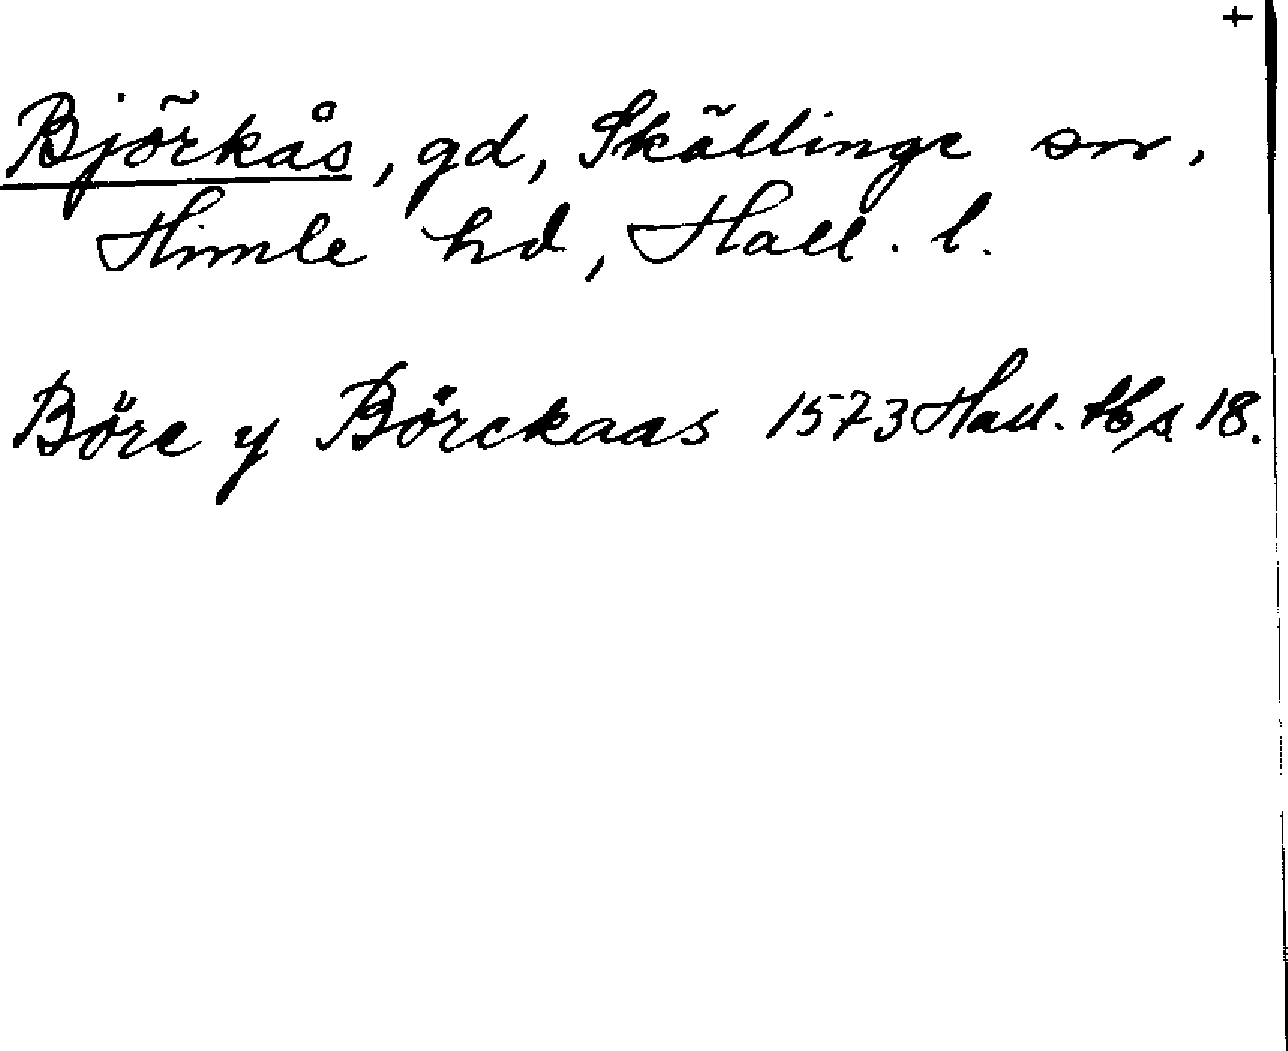 +
Björkås, gd, Skällinge sn,
Himle hd, Hall. l.
Böre y Börckaas 1573 Hall. 18.